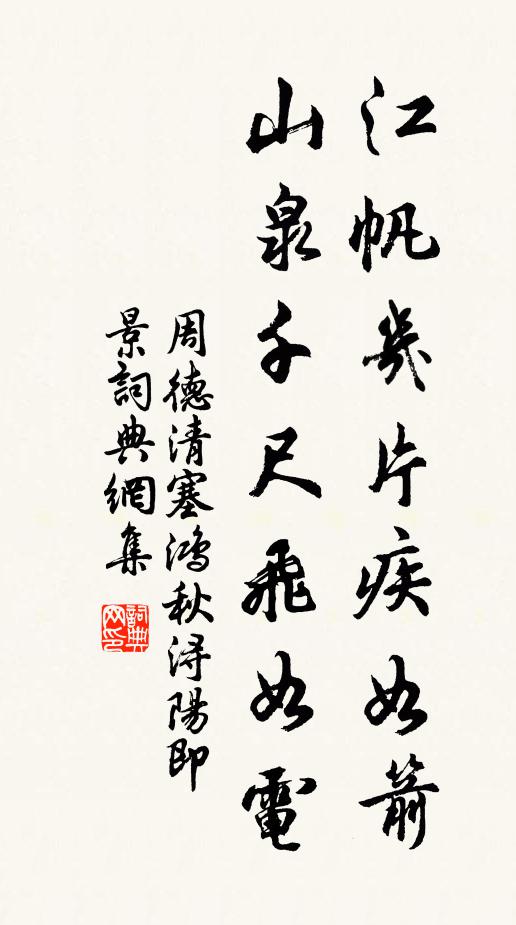 江帆幾片疾如箭
山泉千尺飛如電
周德清塞鴻秋浔陽即
景詞典網集
詞典
网印